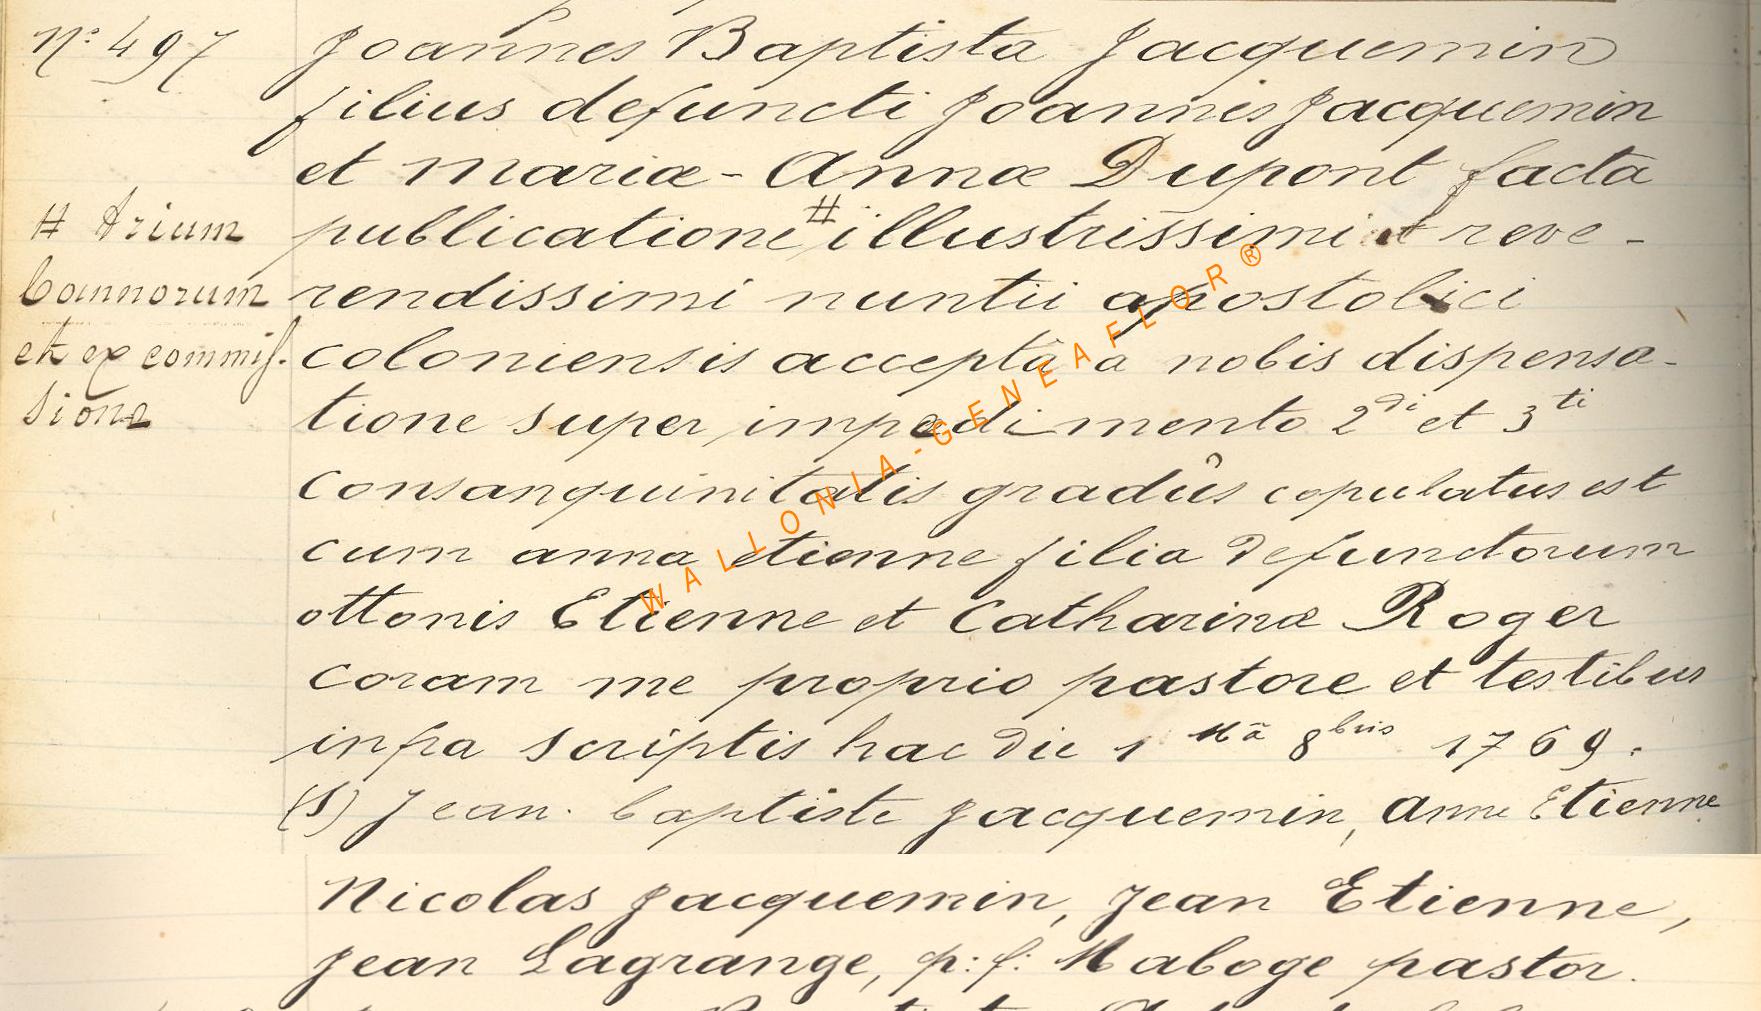 N° 497 Joannes Baptista Jacquemin
filius defuncti Joannis Jacquemin
et mariæ - Annæ Dupont facta
# trium publicatione # illustrissimi et reve-
bannorum rendissimi nuntii apostolici
et ex commis- coloniensis acceptâ a nobis dispensa-
sione tione super impedimento 2di et 3ti
consanquinitatis gradûs copulatus est
cum anna etienne filia defunctorum
ottonis Etienne et Catharinæ Roger
coram me proprio pastore et testibus
infra scriptis hac die 1mâ 8bris 1769.
(S) Jean. baptiste Jacquemin, Anne Etienne
Nicolas Jacquemin, Jean Etienne,
Jean Lagrange, p: f: Maboge pastor.
WALLONIA-GENEAFLOR®